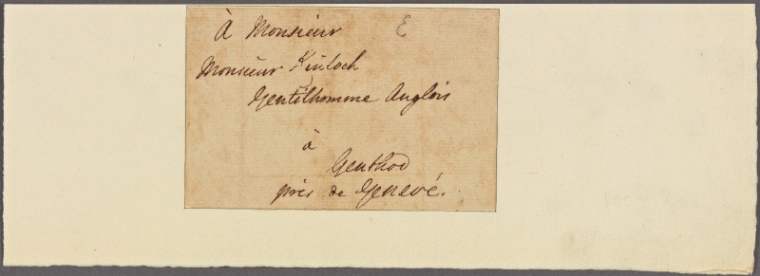 À Monsieur E
Monsieur Kinloch
Gentilhomme Anglois
à
Genthod
près de Genevé.